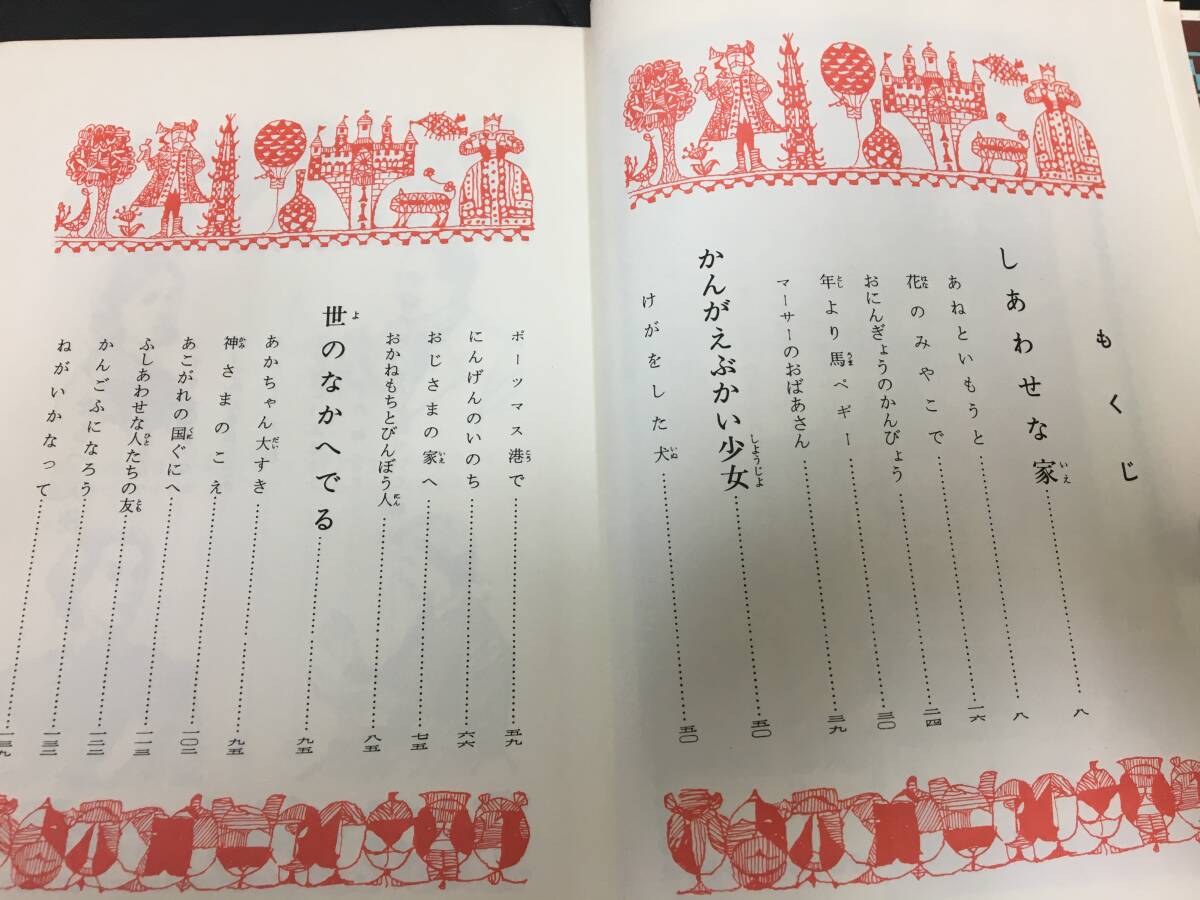 もくじ
しあわせな家……八
あねといもうと……八
花のみやこで……一六
おにんぎょうのかんびょう……二四
年より馬ペギー……三〇
マーサーのおばあさん……三九
かんがえぶかい少女……五〇
けがをした犬……五〇
ポーツマス港で……五九
にんげんのいのち……六六
おじさまの家へ……七五
おかねもちとびんぼう人……八五
世のなかへでる……九五
あかちゃん大すき……九五
神さまのこえ……一〇二
あこがれの国ぐにへ……一一三
ふしあわせな人たちの友……一二二
かんごふになろう……一三二
ねがいかなって……一三九